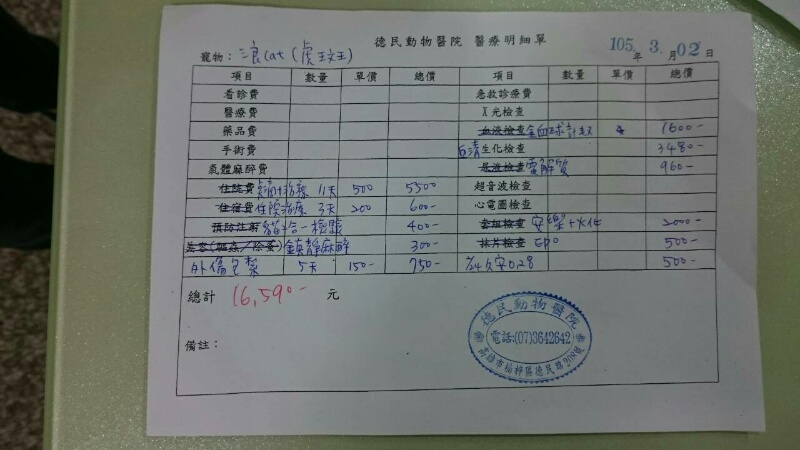 德民動物醫院 醫療明細單
105年 3.月02日
寵物：浪cat (虎王王)
項目 數量 單價 總價 項目 數量 單價 總價
看診費 急救診療費
醫療費 X光檢查
藥品費 血液檢查 全血球計數 1600-
手術費 血清生化檢查 3480-
氣體麻醉費 尿液檢查 電解質 960-
住院費 治療 11天 500 5500 超音波檢查
住宿費 住院治療 3天 200 600- 心電圖檢查
預防注射 貓 合一 400- 套組檢查 安樂+火化 2000-
鎮靜麻醉 300- 抹片檢查 EPO 500-
外傷包紮 5天 150- 750- 500-
總計 16,590- 元
備註：
德民動物醫院
電話:(07)3642642
高雄市楠梓區德民路909號